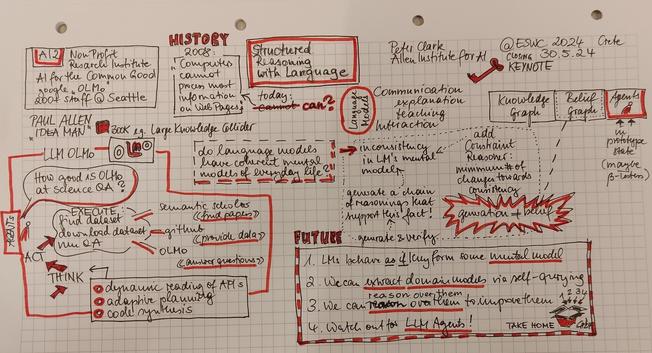 AI2
NonProfit
Research Institute
AI for the Common Good
google OLMo
200+ staff @ Seattle
PAUL ALLEN
"IDEA MAN" BOOK e.g. Large Knowledge Collider
LLM OLMo
How good is OLMo
at Science QA?
AGENTS
EXECUTE:
find dataset
download dataset
run QA
ACT
THINK
semantic scholar
(find papers)
github
(provide data)
OLMo
(answer questions)
dynamic reading of APIs
adaptive planning
code synthesis
HISTORY
2008:
Computer
cannot
process most
information
on Web Pages
today:
cannot can?
Structured
Reasoning
with Language
do language models
have coherent mental
models of everyday life?
Peter Clark
Allen Institute for AI
@ESWC 2024 Crete
CLOSING 30.5.24
KEYNOTE
Language
Models
Communication
explanation
teaching
Interaction
Knowledge
Graph
Belief
Graph
Agents
in
prototype
state
(maybe
β-testers)
inconsistency
in LM's mental
models
add
Constraint
Reasoner:
minimum # of
changes towards
consistency
generate a chain
of reasonings that
support this fact!
generate & verify
generation + belief
FUTURE
1. LMs behave as if they form some mental model
2. We can extract domain models via self-querying
3. We can reason over them to improve them
4. Watch out for LLM Agents!
1 2 3 4
TAKE HOME